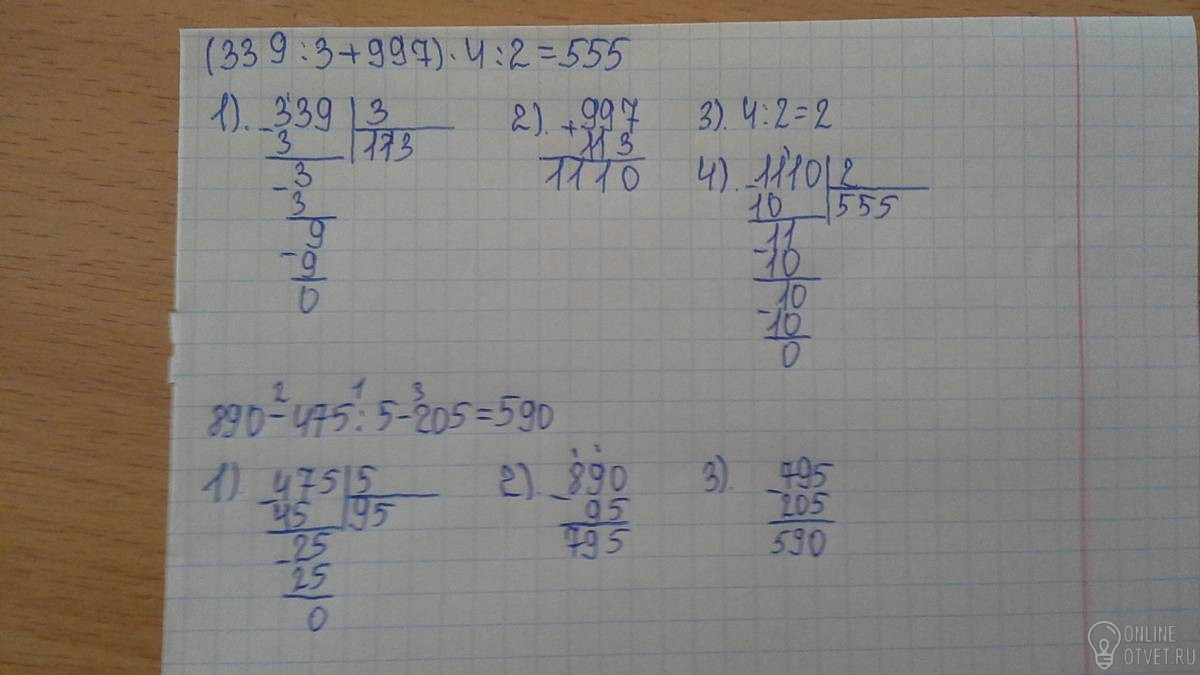 (339:3+997)·4:2=555
1). 339 | 3
- 3 | 113
- 3
3
9
- 9
0
2). + 997
113
1110
3). 4:2=2
4). - 1110 | 2
10 | 555
- 11
10
- 10
10
0
2 1 3
890-475:5-205=590
1). - 475 | 5
45 | 95
- 25
25
0
2). - 890
95
795
3). - 795
205
590
ONLINE
OTVET.RU